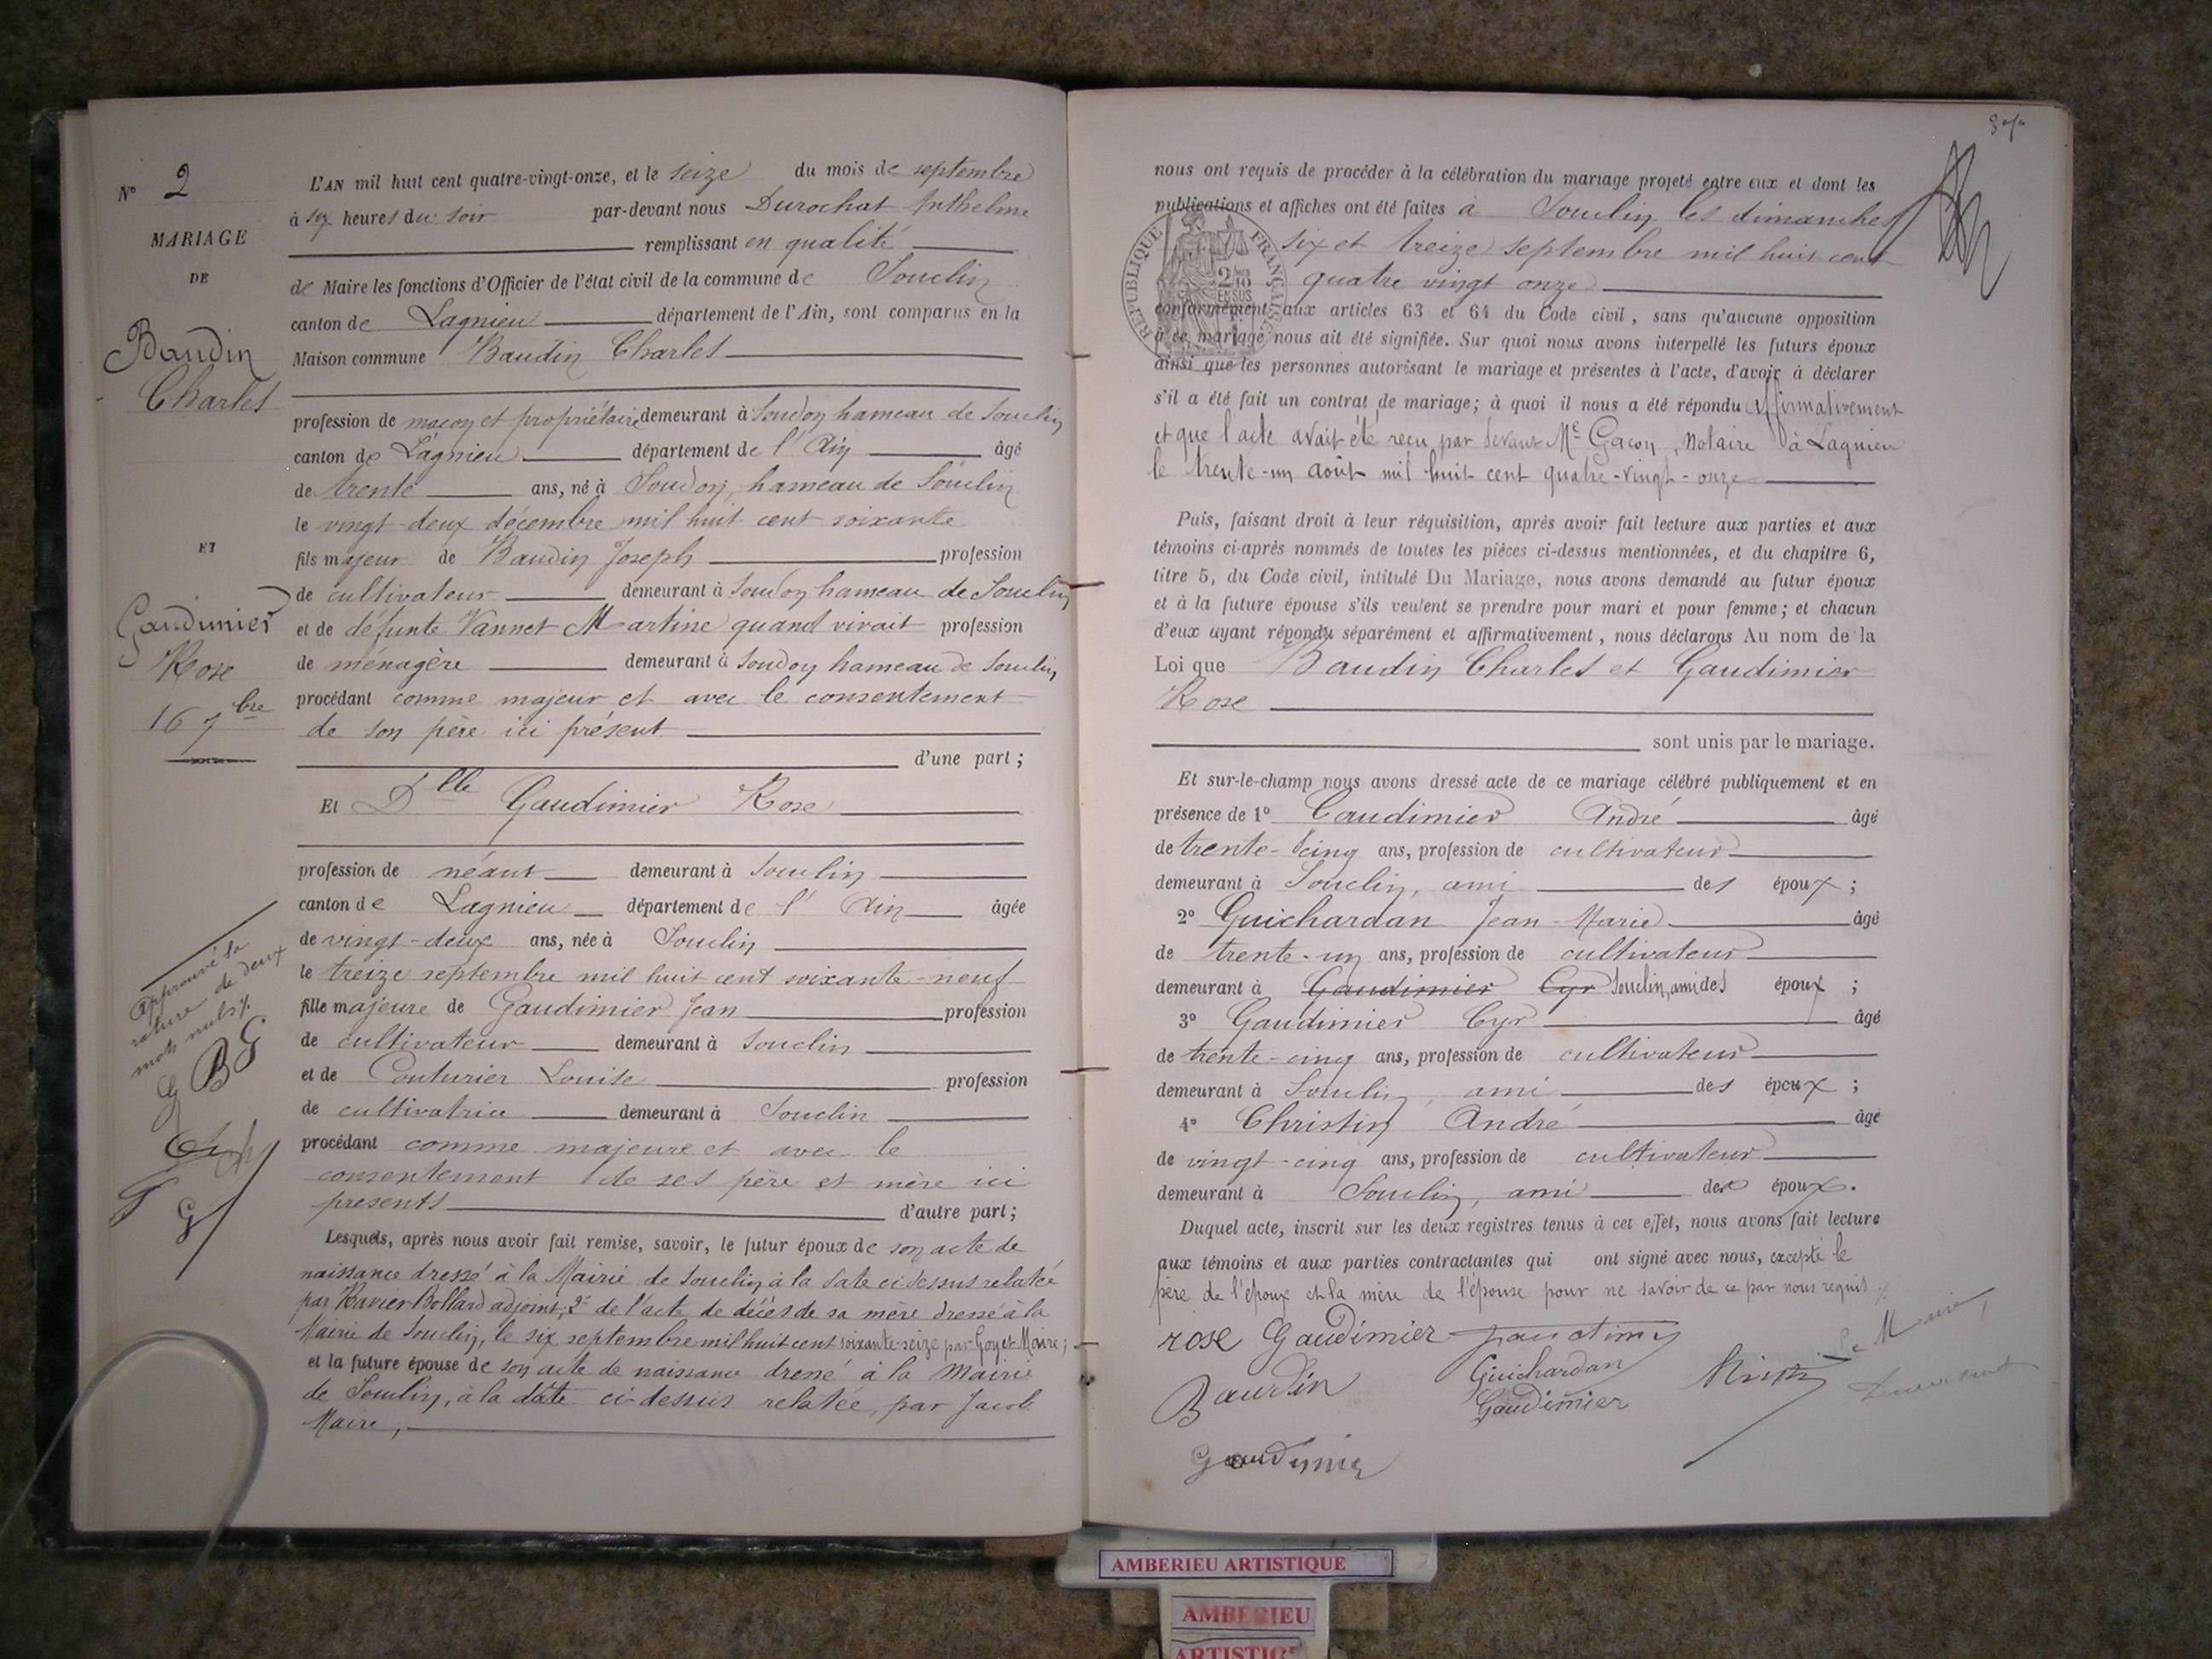 N° 2
MARIAGE
DE
Baudin
Charles
ET
Gaudimier
Rose
16 7bre
Approuvé la
rature de deux
mots nuls
G B G
L'AN mil huit cent quatre-vingt-onze, et le seize du mois de septembre
à six heures du soir par-devant nous Durochat Anthelme
remplissant en qualité
de Maire les fonctions d'Officier de l'état civil de la commune de Souclin
canton de Lagnieu département de l'Ain, sont comparus en la
Maison commune Baudin Charles
profession de maçon et propriétaire demeurant à Soudon hameau de Souclin
canton de Lagnieu département de l'Ain âgé
de trente ans, né à Soudon, hameau de Souclin
le vingt-deux décembre mil huit cent soixante
fils majeur de Baudin Joseph profession
de cultivateur demeurant à Soudon hameau de Souclin
et de défunte Vannet Martine quand vivait profession
de ménagère demeurant à Soudon hameau de Souclin
procédant comme majeur et avec le consentement
de son père ici présent
d'une part ;
Et Dlle Gaudimier Rose
profession de néant demeurant à Souclin
canton de Lagnieu département de l'Ain âgée
de vingt-deux ans, née à Souclin
le treize septembre mil huit cent soixante-neuf
fille majeure de Gaudimier Jean profession
de cultivateur demeurant à Souclin
et de Couturier Louise profession
de cultivatrice demeurant à Souclin
procédant comme majeure et avec le
consentement de ses père et mère ici
présents d'autre part ;
Lesquels, après nous avoir fait remise, savoir, le futur époux de son acte de
naissance dressé à la Mairie de Souclin à la date ci-dessus relatée
par Xavier Bollard adjoint, 2° de l'acte de décès de sa mère dressé à la
Mairie de Souclin, le six septembre mil huit cent soixante-seize par Goyet Maire ;
et la future épouse de son acte de naissance dressé à la Mairie
de Souclin, à la date ci-dessus relatée, par Jacob
Maire,
nous ont requis de procéder à la célébration du mariage projeté entre eux et dont les
publications et affiches ont été faites à Souclin les dimanches
six et treize septembre mil huit cent
quatre vingt onze
RÉPUBLIQUE FRANÇAISE
2/10
EN SUS
conformément aux articles 63 et 64 du Code civil, sans qu'aucune opposition
à ce mariage nous ait été signifiée. Sur quoi nous avons interpellé les futurs époux
ainsi que les personnes autorisant le mariage et présentes à l'acte, d'avoir à déclarer
s'il a été fait un contrat de mariage ; à quoi il nous a été répondu affirmativement
et que l'acte avait été reçu par devant Me Gacon, Notaire à Lagnieu
le trente-un août mil huit cent quatre-vingt-onze
Puis, faisant droit à leur réquisition, après avoir fait lecture aux parties et aux
témoins ci-après nommés de toutes les pièces ci-dessus mentionnées, et du chapitre 6,
titre 5, du Code civil, intitulé Du Mariage, nous avons demandé au futur époux
et à la future épouse s'ils veulent se prendre pour mari et pour femme ; et chacun
d'eux ayant répondu séparément et affirmativement, nous déclarons Au nom de la
Loi que Baudin Charles et Gaudimier
Rose
sont unis par le mariage.
Et sur-le-champ nous avons dressé acte de ce mariage célébré publiquement et en
présence de 1° Gaudimier André âgé
de trente-cinq ans, profession de cultivateur
demeurant à Souclin, ami des époux ;
2° Guichardan Jean-Marie âgé
de trente-un ans, profession de cultivateur
demeurant à Gaudimier Cyr Souclin, ami des époux ;
3° Gaudimier Cyr âgé
de trente-cinq ans, profession de cultivateur
demeurant à Souclin, ami des époux ;
4° Christin André âgé
de vingt-cinq ans, profession de cultivateur
demeurant à Souclin, ami des époux.
Duquel acte, inscrit sur les deux registres tenus à cet effet, nous avons fait lecture
aux témoins et aux parties contractantes qui ont signé avec nous, excepté le
père de l'époux et la mère de l'épouse pour ne savoir de ce par nous requis
rose Gaudimier
Le Maire,
Baudin Guichardan
Gaudimier
Gaudimier
AMBERIEU ARTISTIQUE
AMBERIEU
ARTISTIQ